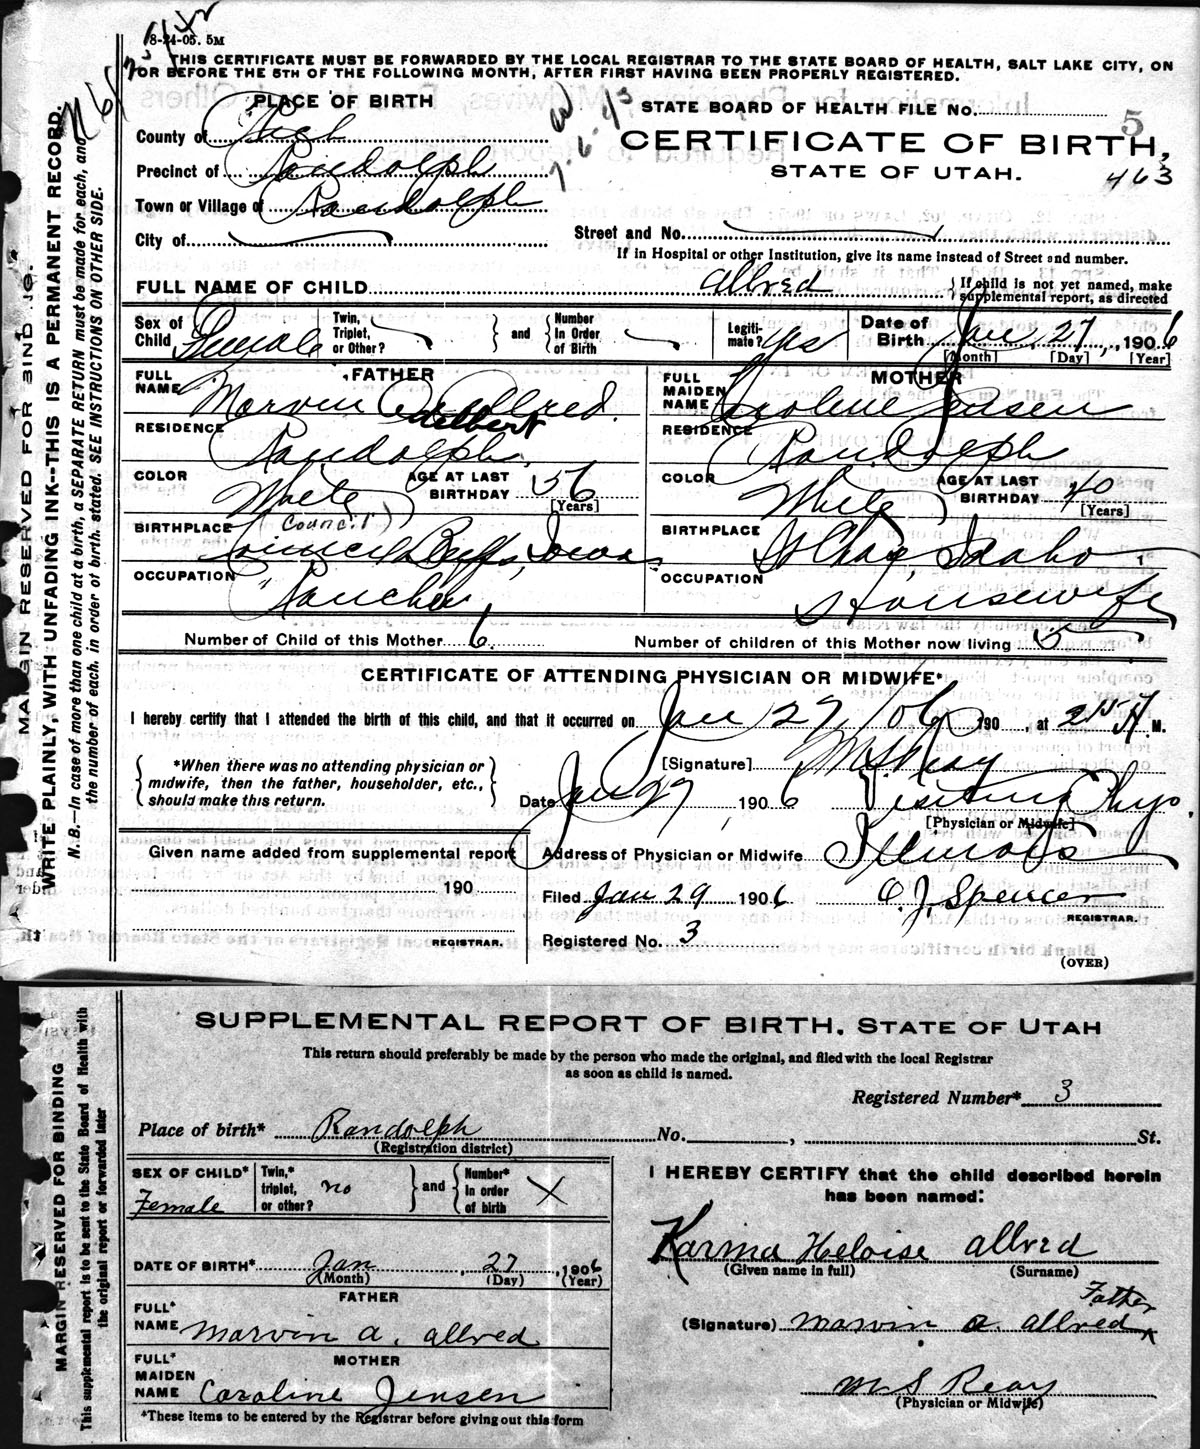 8-24-05. 5M
THIS CERTIFICATE MUST BE FORWARDED BY THE LOCAL REGISTRAR TO THE STATE BOARD OF HEALTH, SALT LAKE CITY, ON
OR BEFORE THE 5TH OF THE FOLLOWING MONTH, AFTER FIRST HAVING BEEN PROPERLY REGISTERED.
PLACE OF BIRTH
STATE BOARD OF HEALTH FILE No.
5
County of Rich
CERTIFICATE OF BIRTH,
Precinct of Randolph
STATE OF UTAH.
463
Town or Village of Randolph
City of
Street and No.
If in Hospital or other Institution, give its name instead of Street and number.
FULL NAME OF CHILD allred
If child is not yet named, make supplemental report, as directed
Sex of Child Female
Twin, Triplet, or Other?
and
Number In Order of Birth
Legitimate? yes
Date of Birth Jan. 27, 1906
[Month] [Day] [Year]
FATHER
FULL NAME Marvin A Allred.
Adelbert
RESIDENCE Randolph.
COLOR White
AGE AT LAST BIRTHDAY 56
[Years]
BIRTHPLACE (Council)
Council Bluffs, Iowa.
OCCUPATION Rancher
MOTHER
FULL MAIDEN NAME Caroline Jensen
RESIDENCE Randolph
COLOR White
AGE AT LAST BIRTHDAY 40
[Years]
BIRTHPLACE St Chas, Idaho
OCCUPATION Housewife
Number of Child of this Mother 6.
Number of children of this Mother now living 5
CERTIFICATE OF ATTENDING PHYSICIAN OR MIDWIFE*
I hereby certify that I attended the birth of this child, and that it occurred on Jan 27, 1906 190 , at 215 A. M.
*When there was no attending physician or midwife, then the father, householder, etc., should make this return.
[Signature] M.S. Reay
Date Jan 27 1906 Visiting Phys.
[Physician or Midwife]
Given name added from supplemental report
190
REGISTRAR.
Address of Physician or Midwife Illinois
Filed Jan 29 1906 O. J. Spencer
REGISTRAR.
Registered No. 3
(OVER)
MARGIN RESERVED FOR BINDING.
WRITE PLAINLY, WITH UNFADING INK--THIS IS A PERMANENT RECORD.
N. B.—In case of more than one child at a birth, a SEPARATE RETURN must be made for each, and
the number of each, in order of birth, stated. SEE INSTRUCTIONS ON OTHER SIDE.
SUPPLEMENTAL REPORT OF BIRTH. STATE OF UTAH
This return should preferably be made by the person who made the original, and filed with the local Registrar
as soon as child is named.
Registered Number* 3
Place of birth* Randolph No. , St.
(Registration district)
SEX OF CHILD* Female
Twin,* triplet, or other? no
and
Number* in order of birth X
DATE OF BIRTH* Jan 27, 1906
(Month) (Day) (Year)
FATHER
FULL* NAME Marvin A. allred
MOTHER
FULL* MAIDEN NAME Caroline Jensen
*These items to be entered by the Registrar before giving out this form
I HEREBY CERTIFY that the child described herein
has been named:
Karma Heloise allred
(Given name in full) (Surname)
Father
(Signature) Marvin a. allred x
M S Reay
(Physician or Midwife)
MARGIN RESERVED FOR BINDING
This supplemental report is to be sent to the State Board of Health with
the original report or forwarded later